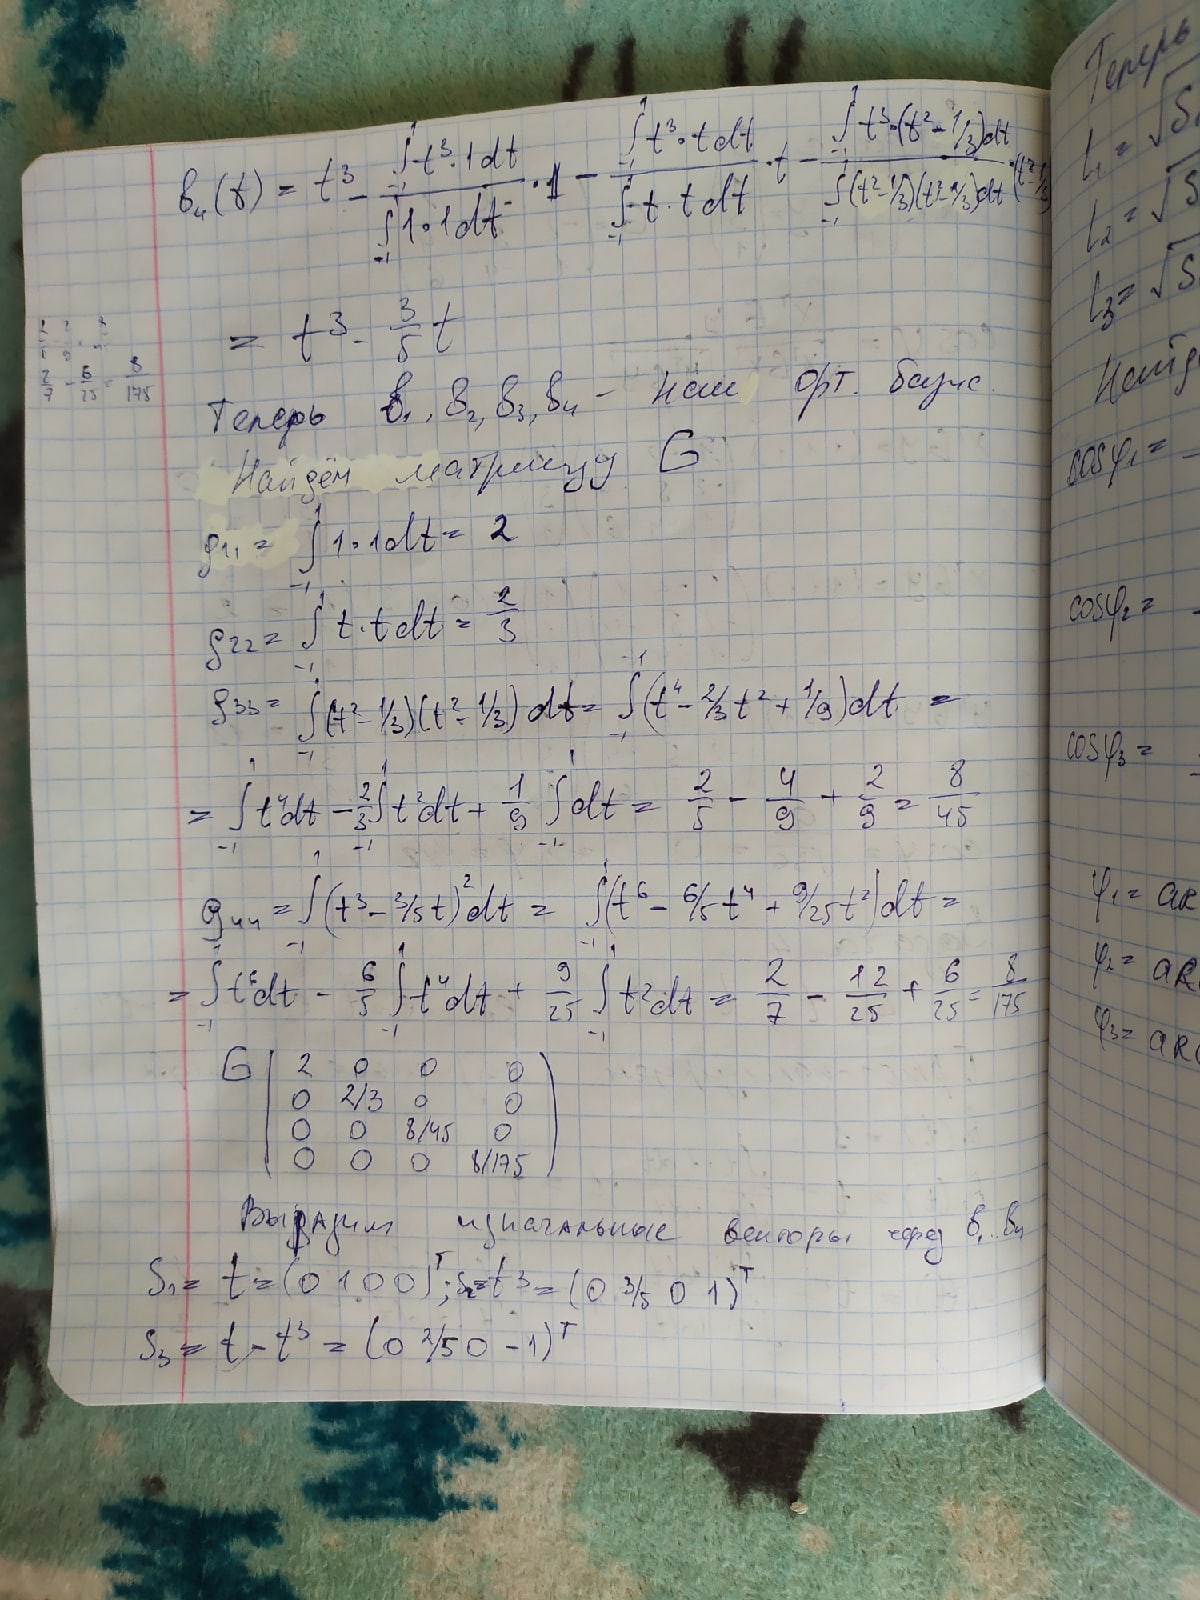 b₄(t) = t³ - (∫₋₁¹ t³·1dt)/(∫₋₁¹ 1·1dt)·1 - (∫₋₁¹ t³·t dt)/(∫₋₁¹ t·t dt)·t - (∫₋₁¹ t³·(t²-1/3)dt)/(∫₋₁¹ (t²-1/3)(t²-1/3)dt)·(t²-1/3)
= t³ - 3/5 t
2/7 - 6/25 = 8/175
Теперь b₁, b₂, b₃, b₄ - наш орт. базис.
Найдём матрицу G
g₁₁ = ∫₋₁¹ 1·1dt = 2
g₂₂ = ∫₋₁¹ t·t dt = 2/3
g₃₃ = ∫₋₁¹ (t²-1/3)(t²-1/3)dt = ∫₋₁¹ (t⁴ - 2/3t² + 1/9)dt =
= ∫₋₁¹ t⁴dt - 2/3 ∫₋₁¹ t²dt + 1/9 ∫₋₁¹ dt = 2/5 - 4/9 + 2/9 = 8/45
g₄₄ = ∫₋₁¹ (t³ - 3/5t)²dt = ∫₋₁¹ (t⁶ - 6/5t⁴ + 9/25t²)dt =
= ∫₋₁¹ t⁶dt - 6/5 ∫₋₁¹ t⁴dt + 9/25 ∫₋₁¹ t²dt = 2/7 - 12/25 + 6/25 = 8/175
G ( 2 0 0 0
0 2/3 0 0
0 0 8/45 0
0 0 0 8/175 )
Выразим изначальные векторы через b₁..b₄
S₁ = t = (0 1 0 0)ᵀ; S₂ = t³ = (0 3/5 0 1)ᵀ
S₃ = t - t³ = (0 2/5 0 -1)ᵀ
Теперь
l₁ = √S
l₂ = √S
l₃ = √S
cosφ₁ =
cosφ₂ =
cosφ₃ =
φ₁ = ar
φ₂ = ar
φ₃ = arc